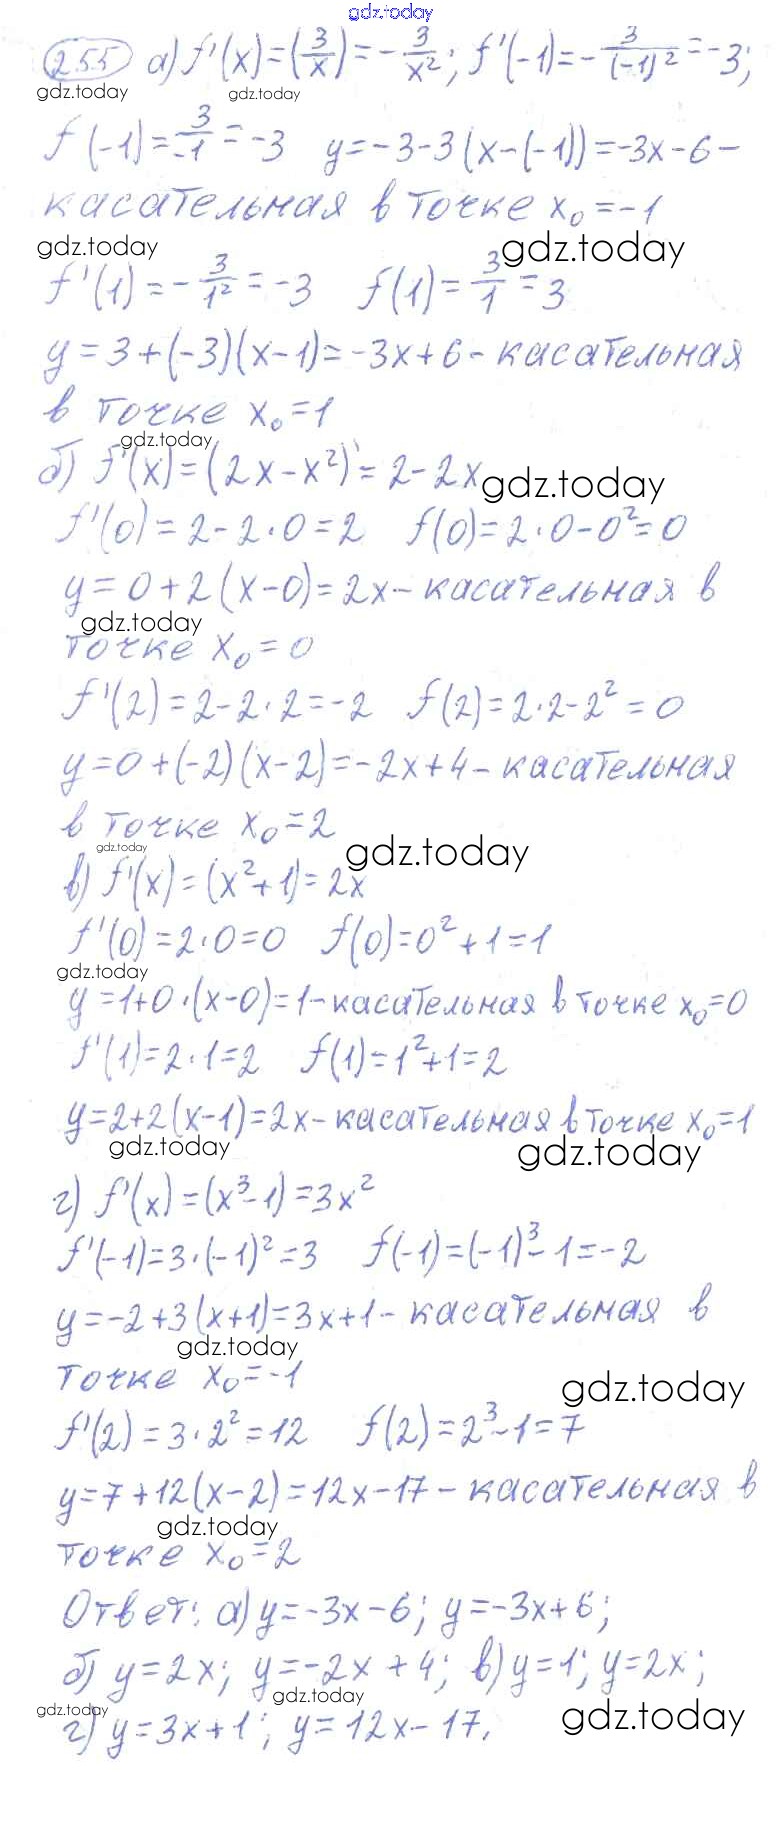 gdz.today
255 а) f'(x)=(3/x)=-3/x²; f'(-1)=-3/(-1)²=-3;
gdz.today gdz.today
f(-1)=3/-1=-3 y=-3-3(x-(-1))=-3x-6-
касательная в точке x₀=-1
gdz.today gdz.today
f'(1)=-3/1²=-3 f(1)=3/1=3
y=3+(-3)(x-1)=-3x+6-касательная
в точке x₀=1
gdz.today
б) f'(x)=(2x-x²)'=2-2x
gdz.today
f'(0)=2-2·0=2 f(0)=2·0-0²=0
y=0+2(x-0)=2x-касательная в
gdz.today
точке x₀=0
f'(2)=2-2·2=-2 f(2)=2·2-2²=0
y=0+(-2)(x-2)=-2x+4-касательная
в точке x₀=2
gdz.today gdz.today
в) f'(x)=(x²+1)=2x
f'(0)=2·0=0 f(0)=0²+1=1
gdz.today
y=1+0·(x-0)=1-касательная в точке x₀=0
f'(1)=2·1=2 f(1)=1²+1=2
y=2+2(x-1)=2x-касательная в точке x₀=1
gdz.today gdz.today
г) f'(x)=(x³-1)=3x²
f'(-1)=3·(-1)²=3 f(-1)=(-1)³-1=-2
y=-2+3(x+1)=3x+1-касательная в
gdz.today
точке x₀=-1
gdz.today
f'(2)=3·2²=12 f(2)=2³-1=7
y=7+12(x-2)=12x-17-касательная в
gdz.today
точке x₀=2
Ответ: а) y=-3x-6; y=-3x+6;
б) y=2x; y=-2x+4; в) y=1; y=2x;
gdz.today
gdz.today gdz.today
г) y=3x+1; y=12x-17.